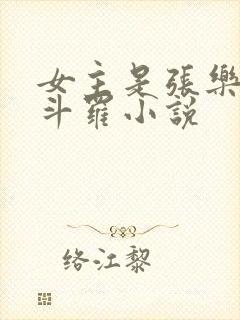 女主是張樂
斗羅小說
络江黎